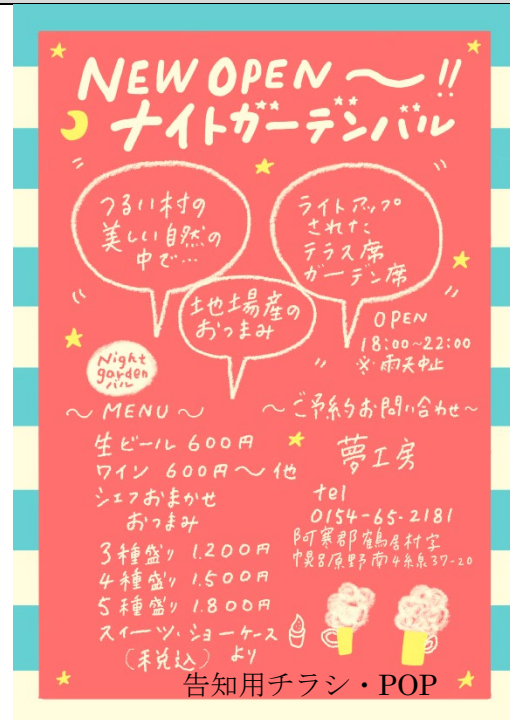 NEW OPEN 〜!!
ナイトガーデンバル
つるい村の
美しい自然の
中で…
ライトアップ
された
テラス席
ガーデン席
土地場産の
おつまみ
OPEN
18:00~22:00
※雨天中止
Night
garden
バル
〜 MENU 〜
生ビール 600円
ワイン 600円〜 他
シェフおまかせ
おつまみ
3種盛り 1.200円
4種盛り 1.500円
5種盛り 1.800円
スイーツ・ショーケース
(税込) より
〜ご予約お問い合わせ〜
夢工房
tel
0154-65-2181
阿寒郡鶴居村字
幌呂原野南4線37-20
告知用チラシ・POP